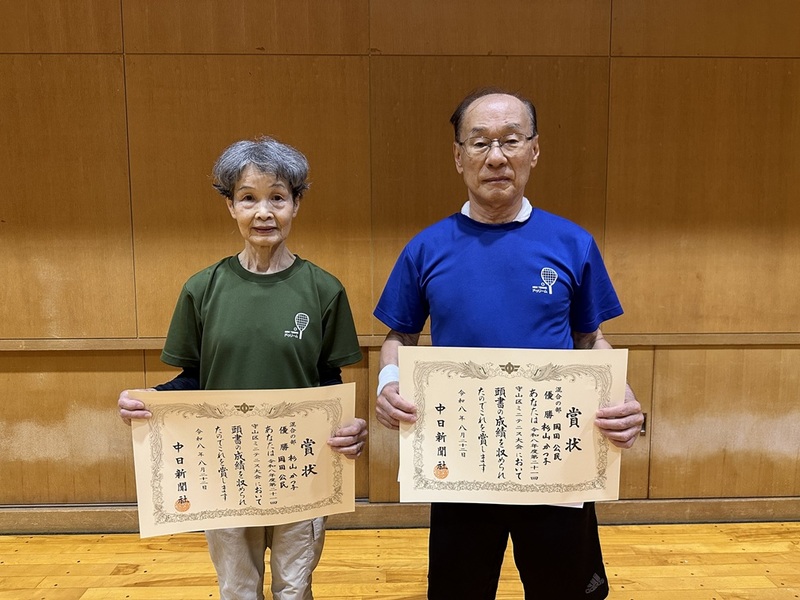 賞状
混合の部
優勝 杉山かつ子
岡田公民
あなたは令和八年度第二十一回
守山区ミニテニス大会において
頭書の成績を収められ
たのでこれを賞します
令和八年八月二十二日
中日新聞社
賞状
混合の部
優勝 岡田公民
杉山かつ子
あなたは令和八年度第二十一回
守山区ミニテニス大会において
頭書の成績を収められ
たのでこれを賞します
令和八年八月二十二日
中日新聞社